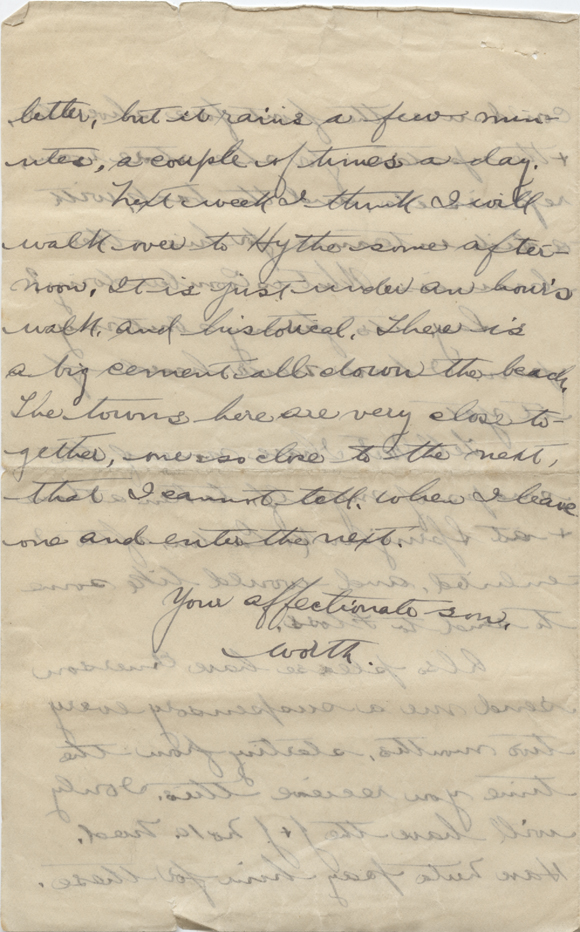 better, but it rains a few min-
utes, a couple of times a day.
Next week I think I will
walk over to Hythe some after-
noon. It is just under an hour's
walk, and historical. There is
a big cement all down the beach.
The towns here are very close to-
gether, one so close to the next,
that I cannot tell, when I leave
one and enter the next.
Your affectionate son,
Worth.